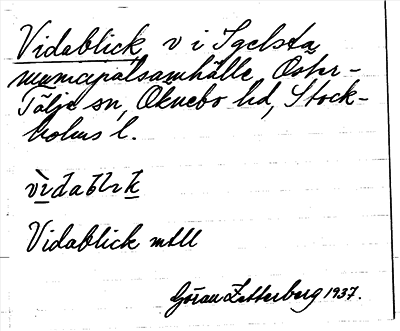 Vidablick, v i Igelsta
municipalsamhälle, Öster-
Tälje sn, Öknebo hd, Stock-
holms l.
vìdablik
Vidablick mtll
Göran Zetterberg 1937.